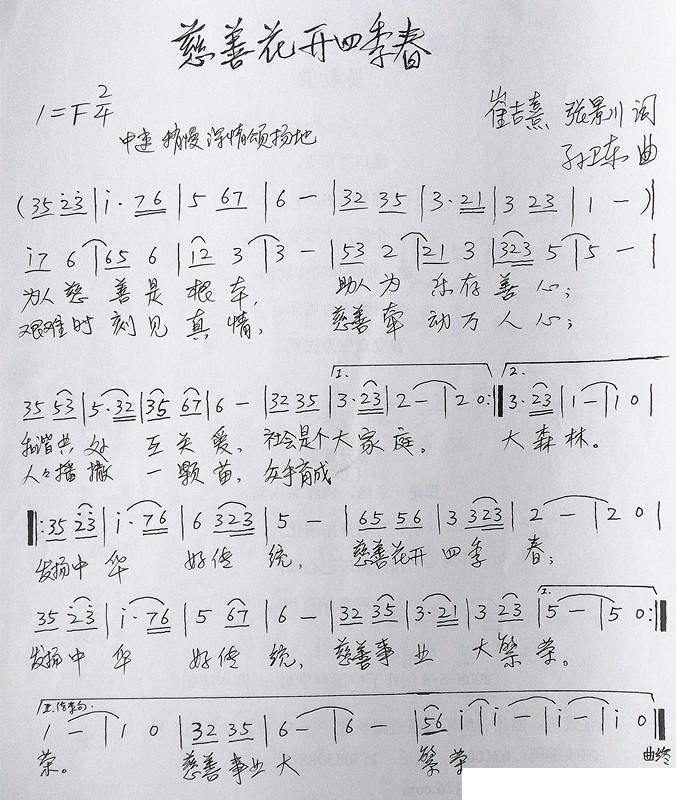 慈善花开四季春
1=F 2/4
中速 稍慢 深情颂扬地
崔吉熹 张景川 词
孙卫东 曲
(35 2̇3̇ | i· 76 | 5 67 | 6 − | 32 35 | 3·21 | 3 23 | 1 − )|
i7 6 | 65 6 | i2 3 | 3 − | 53 2 | 21 3 | 323 5 | 5 − |
为人慈善是根本, 助人为乐存善心;
艰难时刻见真情, 慈善牵动万人心;
1. 2.
35 53 | 5·32 | 35 67 | 6 − | 32 35 | 3·23 | 2 − | 2 0 :‖ 3·23 | 1 − | 1 0 |
和谐共处 互关爱, 社会是个大家庭。 大森林。
人人播撒 一颗苗, 众手育成
‖: 35 2̇3̇ | i·76 | 6 323 | 5 − | 65 56 | 3 323 | 2 − | 2 0 |
发扬中华 好传统, 慈善花开四季春;
1.
35 2̇3̇ | i·76 | 5 67 | 6 − | 32 35 | 3·21 | 3 23 | 5 − | 5 0 :‖
发扬中华 好传统, 慈善事业 大繁荣。
1 − | 1 0 | 32 35 | 6 − | 6 − | 56 i | i − | i − | i 0 ‖
荣。 慈善事业大 繁荣
曲终